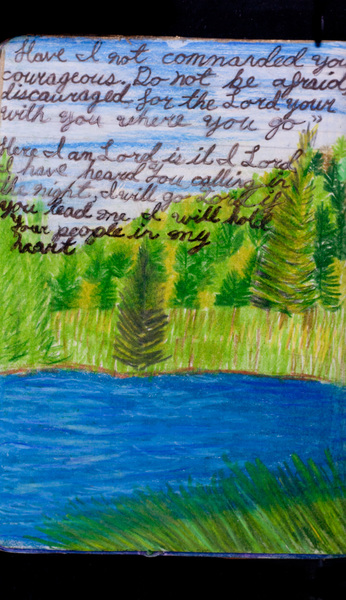 Have I not commanded you
courageous. Do not be afraid
discauraged for the Lord your
with you where you go"
Here I am Lord, is it I Lord
I have heard you calling in
the night I will go Lord if
you lead me I will hold
your people in my
heart